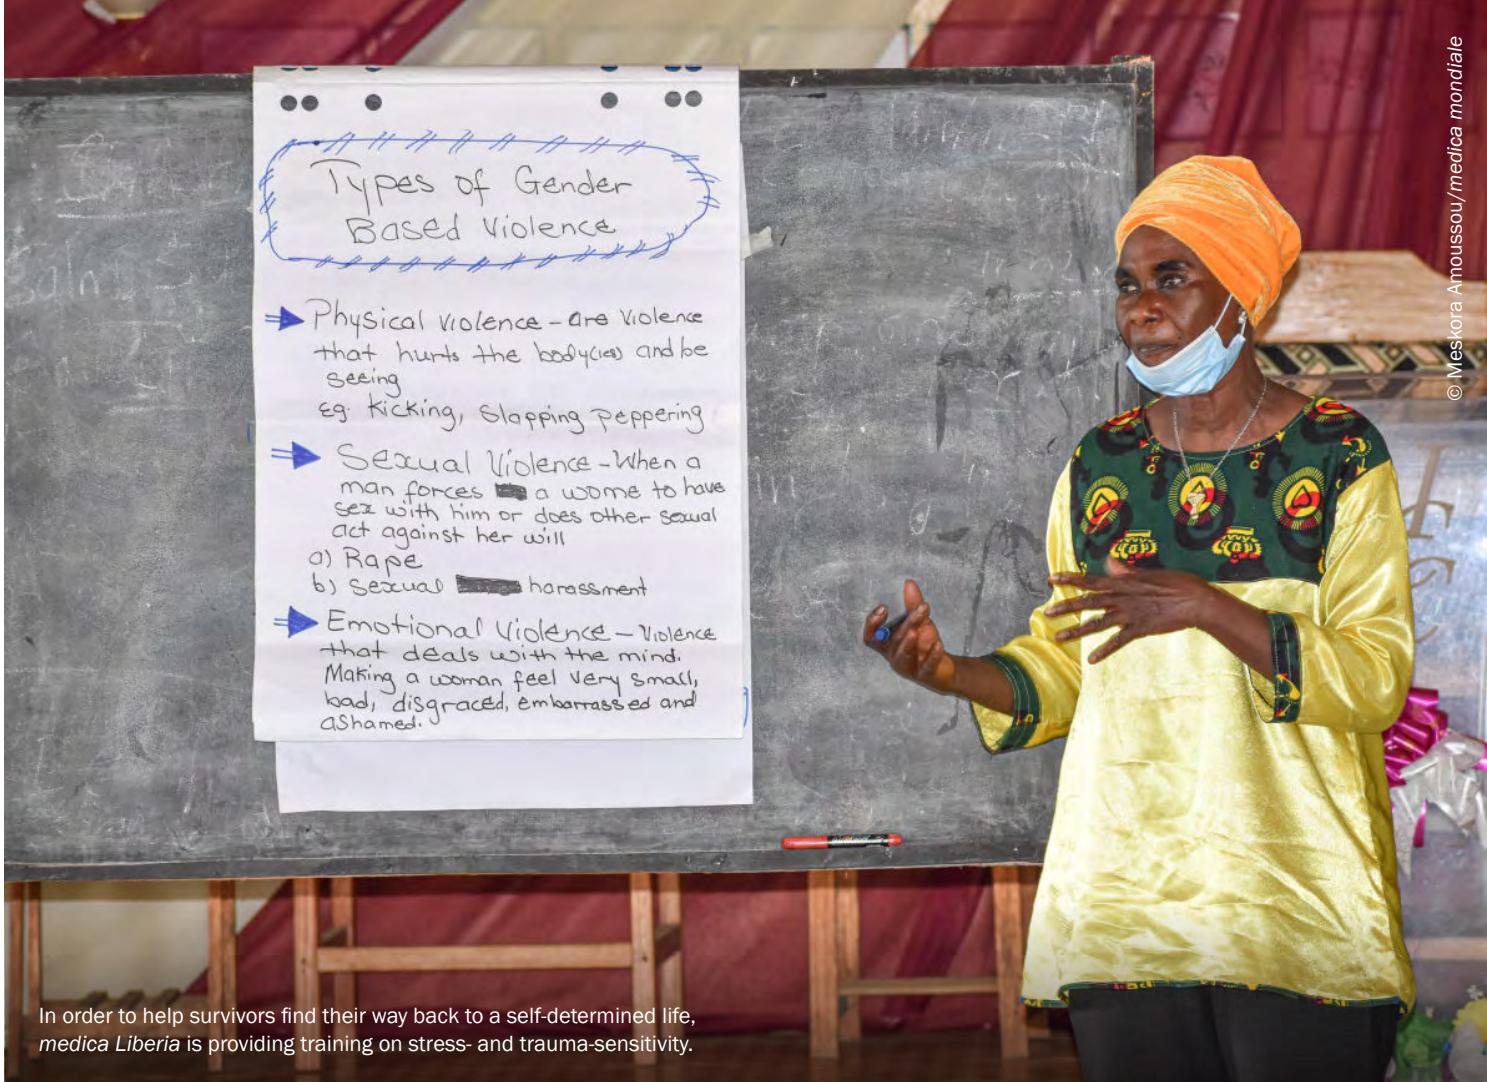 Types of Gender
Based Violence
Physical violence – are violence
that hurts the body(ies) and be
seeing
eg. kicking, slapping peppering
Sexual Violence – When a
man forces a wome to have
sex with him or does other sexual
act against her will
a) Rape
b) sexual harassment
Emotional violence – violence
that deals with the mind.
Making a woman feel very small,
bad, disgraced, embarrassed and
ashamed.
© Meskora Amoussou/medica mondiale
In order to help survivors find their way back to a self-determined life,
medica Liberia is providing training on stress- and trauma-sensitivity.